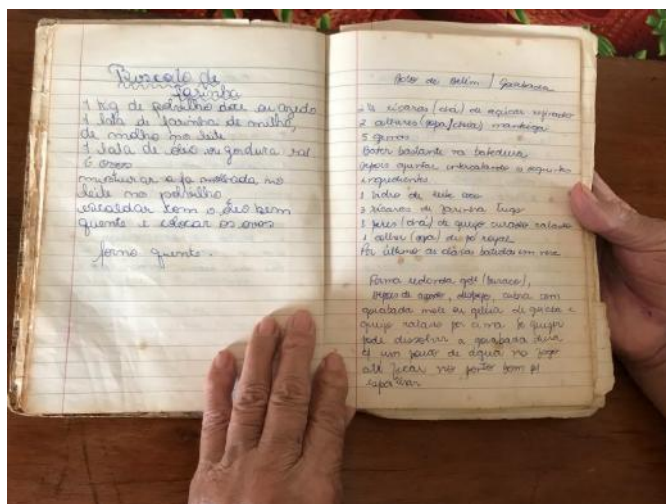 Biscoito de
Farinha
1 Kg de polvilho doce ou azedo
1 lata de farinha de milho,
de molho no leite
1 lata de óleo ou gordura sal
6 ovos
misturar a fa molhada no
leite no polvilho
escaldar com o óleo bem
quente e colocar os ovos
forno quente.
Bolo de Belém / Goiabada
2 xícaras (chá) de açúcar refinado
2 colheres (sopa/cheia) manteiga
5 gemas
Bater bastante na batedeira
depois ajuntar intercalando o seguinte
ingredientes
1 vidro de leite coco
3 xícaras de farinha trigo
1 (chá) de queijo curado ralado
1 colher (sopa) de pó royal
Por último as claras batidas em neve
Forma redonda gde (buraco),
depois de assado, despeje, cubra com
goiabada mole ou geléia de e
queijo ralado por cima. Se quizer
pode dissolver a goiabada dura
c/ um pouco de água no fogo
até ficar no ponto bom p/
espalhar